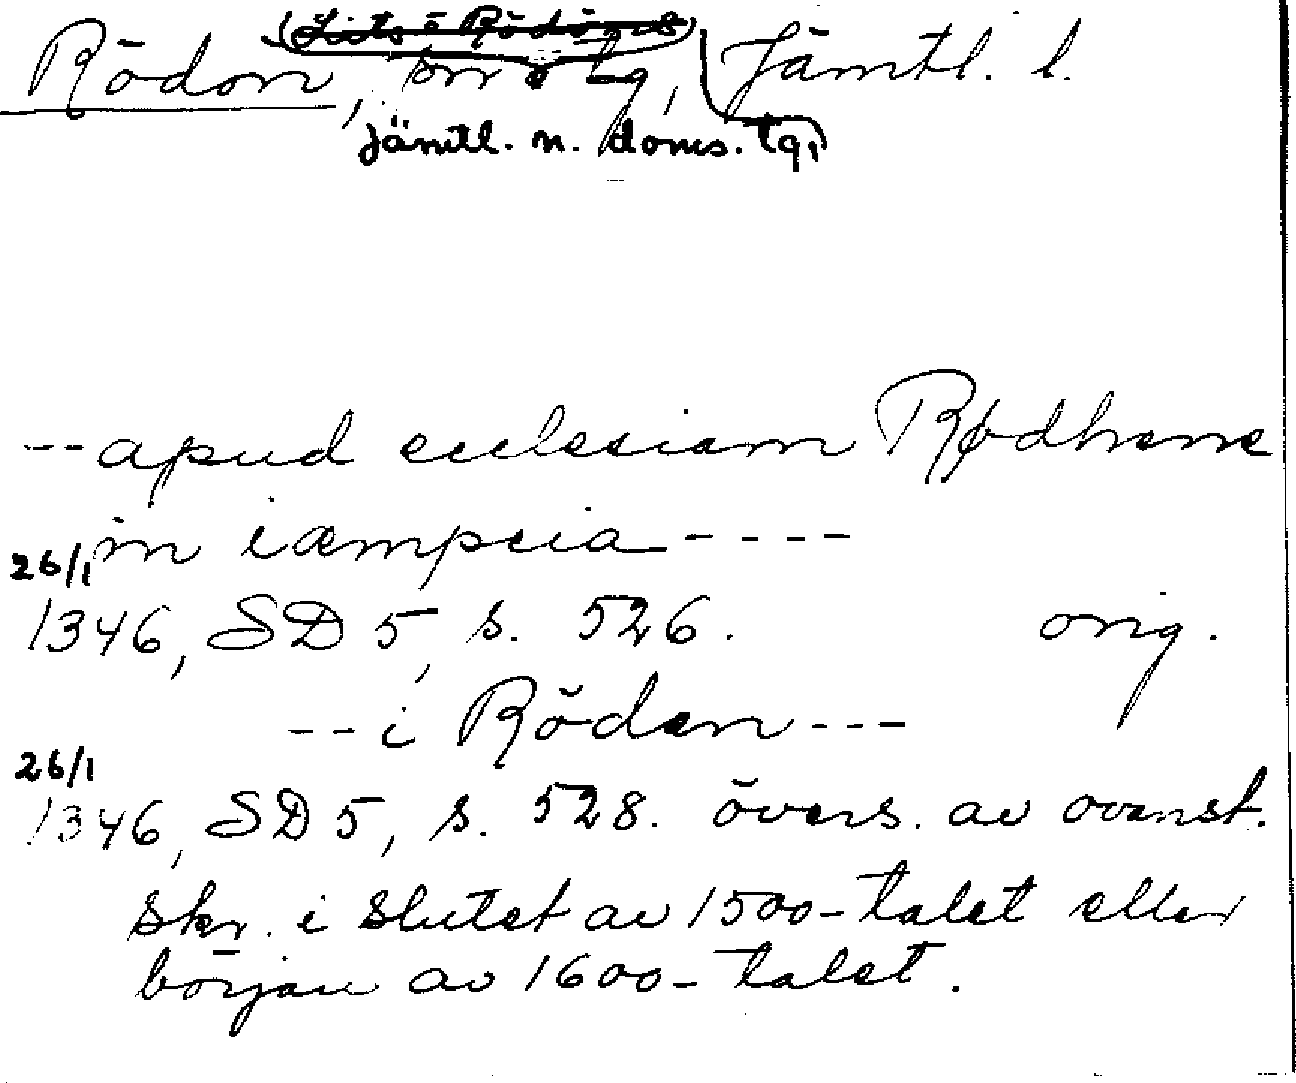 Lits o Rödöns
Rödön, sn o tg, Jämtl. l.
Jämtl. n. doms. tg,
--apud ecclesiam Rødhene
in iæmpcia----
26/1
1346, SD 5, s. 526. orig.
--i Röden---
26/1
1346, SD 5, s. 528. övers. av ovanst.
skr. i slutet av 1500-talet eller
början av 1600-talet.